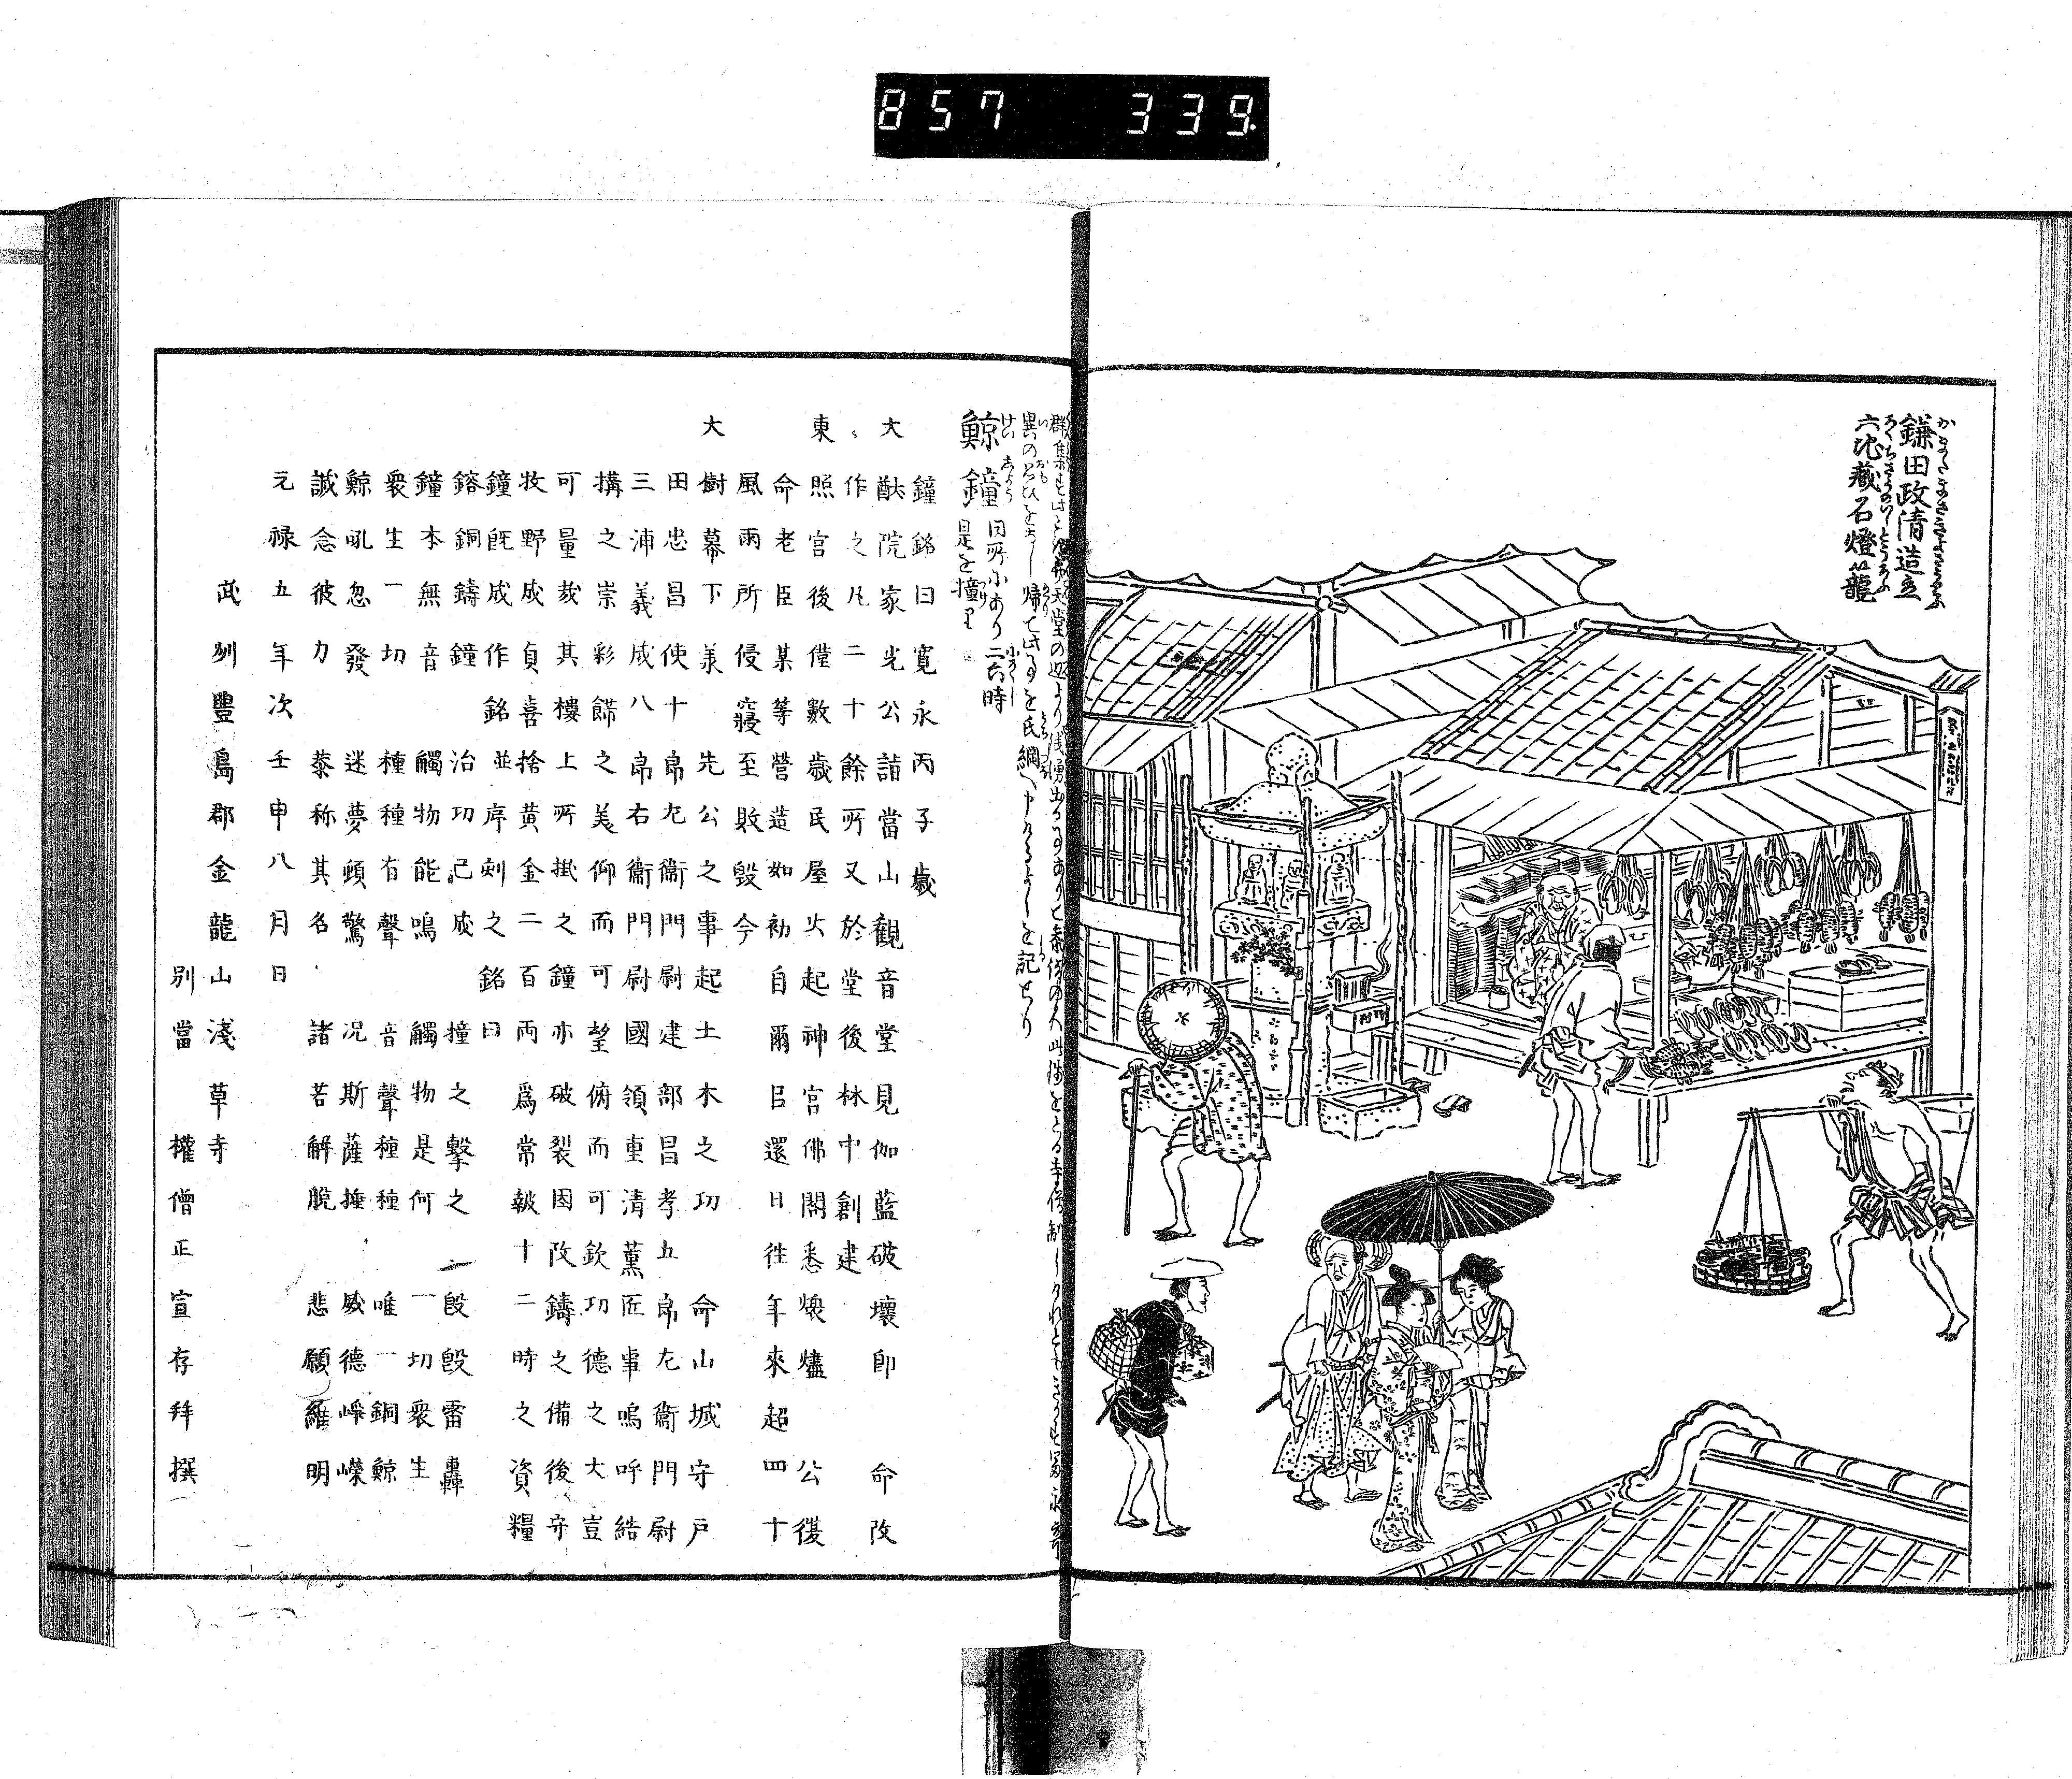 857 339
鎌田政清造立
六地蔵石燈籠
鯨鐘
同所にあり二六時
是を撞り
鐘銘曰寛永丙子歳
大猷院家光公詣當山観音堂見伽藍破壊即 命改
作之凡二十餘所又於堂後林中創建
東照宮後僅數歳民屋火起神宮佛閣悉燬燼 公復
命老臣某等營造如初自爾以還日往年來超四十
風雨所侵寢至敗毀今
大樹幕下美 先公之事起土木之功 命山城守戸
田忠昌使十郎左衞門尉建部昌孝五郎左衞門尉
三浦義成八郎右衞門尉國領重清薫匠事嗚呼結
構之崇彩飾之美仰而可望俯而可欽功德之大豈
可量哉其樓上所掛之鐘亦破裂因改鑄之備後守
牧野成貞喜捨黄金二百両爲常報十二時之資糧
鐘既成作銘並序刻之銘曰
鎔銅鑄鐘 治功已成 撞之擊之 一殷殷雷轟
鐘本無音 觸物能鳴 觸物是何 一切衆生
衆生一切 種種有聲 音聲種種 唯一銅鯨
鯨吼忽發 迷夢頓驚 况斯薩捶 威德崢嶸
誠念彼力 恭称其名 諸苦解脱 悲願維明
元禄五年次壬申八月日
武州豐島郡金龍山淺草寺
別當 權僧正宣存拜撰